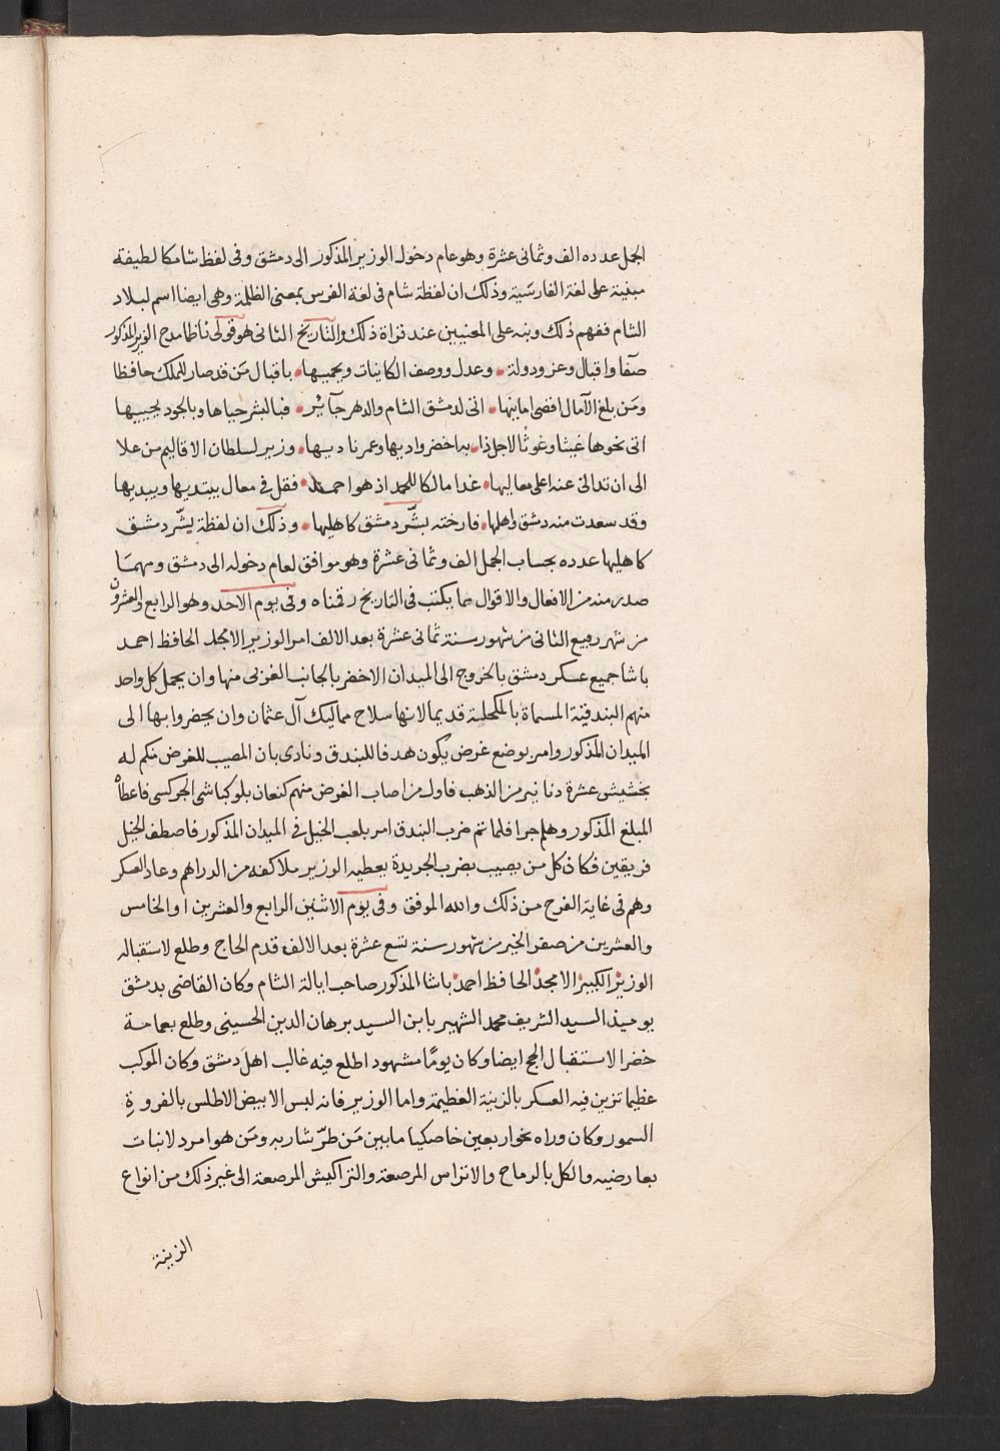 الجمل عدده الف وثمانى عشرة وهو عام دخول الوزير المذكور الى دمشق وفى لفظ شامكا لطيفة
مبنية على لغة الفارسية وذلك ان لفظة شام فى لغة الفرس بمعنى الظلمة وهى ايضا اسم لبلاد
الشام ففهم ذلك ونبه على المعنيين عند قراة ذلك والتاريخ الثانى هو قولى ناظما مدح الوزير المذكور
صفا واقبال وعز ودولة وعدل ووصف الكاينات ويحميها باقبال من قد صار للملك حافظا
ومن بلغ الآمال اقصى امانيها اتى لدمشق الشام والدهر جآئر فبالبشر حياها وبالجود يحييها
اتى نحوها غيثا وغوثا لاجل ذا به اخضر واديها وعمر ناديها وزير لسلطان الاقاليم من علا
الى ان تدالى عنه اعلى معاليها غدا مالكا للحمد اذ هو احمد فقل فى معال يبتديها ويبديها
وقد سعدت منه دمشق واهلها فارخته بشّر دمشق كاهليها وذلك ان لفظة بشّر دمشق
كاهليها عدده بحساب الجمل الف وثمانى عشرة وهو موافق لعام دخوله الى دمشق ومهما
صدر منه من الافعال والاقوال مما يكتب فى التاريخ رقمناه وفى يوم الاحد وهو الرابع والعشرون
من شهر ربيع الثانى من شهور سنة ثمانى عشرة بعد الالف امر الوزير الامجد الحافظ احمد
باشا جميع عسكر دمشق بالخروج الى الميدان الاخضر بالجانب الغربى منها وان يحمل كل واحد
منهم البندقية المسماة بالمكحلة قديما لانها سلاح مماليك آل عثمان وان يحضروا بها الى
الميدان المذكور وامر بوضع غرض يكون هدفا للبندق ونادى بان المصيب للغرض منكم له
بخشيش عشرة دنانير من الذهب فاول من اصاب الغرض منهم كنعان بلوكباشى الجركسى فاعطاه
المبلغ المذكور وهلم جرا فلما تم ضرب البندق امر بلعب الخيل فى الميدان المذكور فاصطف الخيل
فريقين فكان كل من يصيب بضرب الجريدة يعطيه الوزير ملا كفه من الدراهم وعاد العسكر
وهم فى غاية الفرح من ذلك والله الموفق وفى يوم الاثنين الرابع والعشرين او الخامس
والعشرين من صفر الخير من شهور سنة تسع عشرة بعد الالف قدم الحاج وطلع لاستقباله
الوزير الكبير الامجد الحافظ احمد باشا المذكور صاحب ايالة الشام وكان القاضى بدمشق
يوميذ السيد الشريف محمد الشهير بابن السيد برهان الدين الحسينى وطلع بعمامة
خضرا لاستقبال الحج ايضا وكان يومًا مشهود اطلع فيه غالب اهل دمشق وكان الموكب
عظيما تزين فيه العسكر بالزينة العظيمة واما الوزير فانه لبس الابيض الاطلس بالفروة
السمور وكان وراه نحو اربعين خاصكيا ما بين من طرّ شاربه ومن هو امرد لا نبات
بعارضيه والكل بالرماح والاتراس المرصعة والتراكيش المرصعة الى غير ذلك من انواع
الزينة